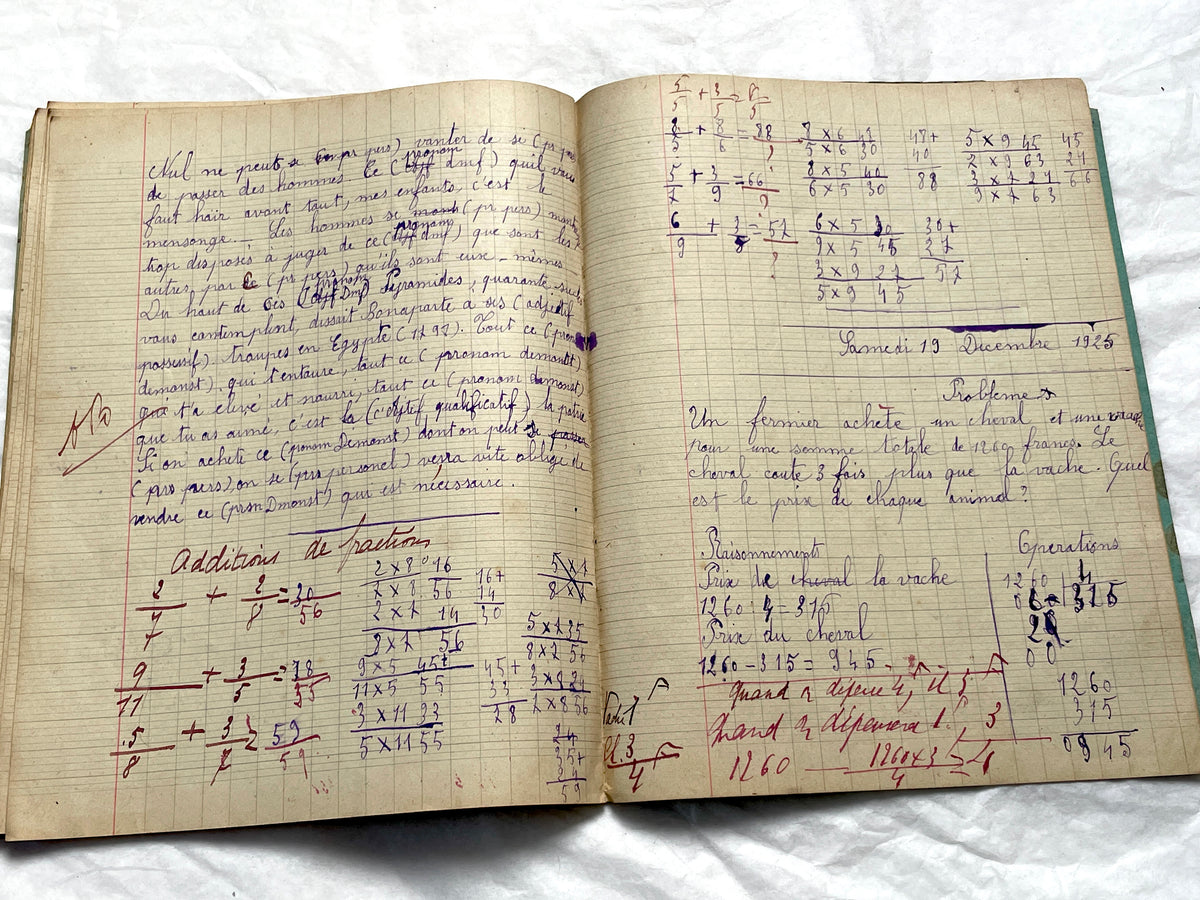 Nul ne peut se (pr pers) vanter de se (pr pers)
de passer des hommes. Ce (pronom dmf) quil vous
faut haïr avant tout, mes enfants, c'est le
mensonge. — Les hommes se (pr pers) mont
trop disposés à juger de ce (pronom dmf), que sont les
autres, par ce (pr pers) qu'ils sont eux-mêmes
Du haut de ces (adjf Dmf) Pyramides, quarante siècles
vous contemplent, disait Bonaparte à ses (adjectif
possessif). troupes en Egypte (1797). Tout ce (pronom
demonst). qui t'entoure, tout ce (pronom demonst)
qui t'a élevé et nourri, tout ce (pronom demonst)
que tu as aimé, c'est la (adjectif qualificatif) la patrie.
Si on achete ce (pronom Demonst) dont on peut se passer
(pro pers) on se (pro personel) verra vite obligé de
vendre ce (pron Dmonst) qui est nécessaire.
Additions de fractions
2/7 + 2/8 = 30/56
2 x 8 16
7 x 8 56
2 x 7 14
8 x 7 56
16+
14
30
5 x 7
8 x 7
9/11 + 3/5 = 78/55
9 x 5 45+
11 x 5 55
3 x 11 33
5 x 11 55
45+
33
78
5 x 7 35
8 x 7 56
3 x 8 24
7 x 8 56
5/8 + 3/7 = 59/59
24
35+
24
59
5/5 + 3/5 = 8/5
8/5 + 8/6 = 88/?
8 x 6 48
5 x 6 30
8 x 5 40
6 x 5 30
48+
40
88
5 x 9 45
7 x 9 63
3 x 7 21
9 x 7 63
45
21
66
5/7 + 3/9 = 66/?
6/9 + 3/5 = 57/?
6 x 5 30
9 x 5 45
3 x 9 27
5 x 9 45
30+
27
57
Samedi 19 Decembre 1925
Probleme
Un fermier achète un cheval et une vache
pour une somme totale de 1260 francs. Le
cheval coute 3 fois plus que la vache. Quel
est le prix de chaque animal?
Raisonnements
Operations
Prix de cheval la vache
1260 : 4 = 315
Prix du cheval
1260 – 315 = 945
1260 4
06 315
20
00
1260
315
0945
Quand a dépense 4, il 3
Quand a dépensera 1, 3
3/4
1260 — 1260x3/4 = 4